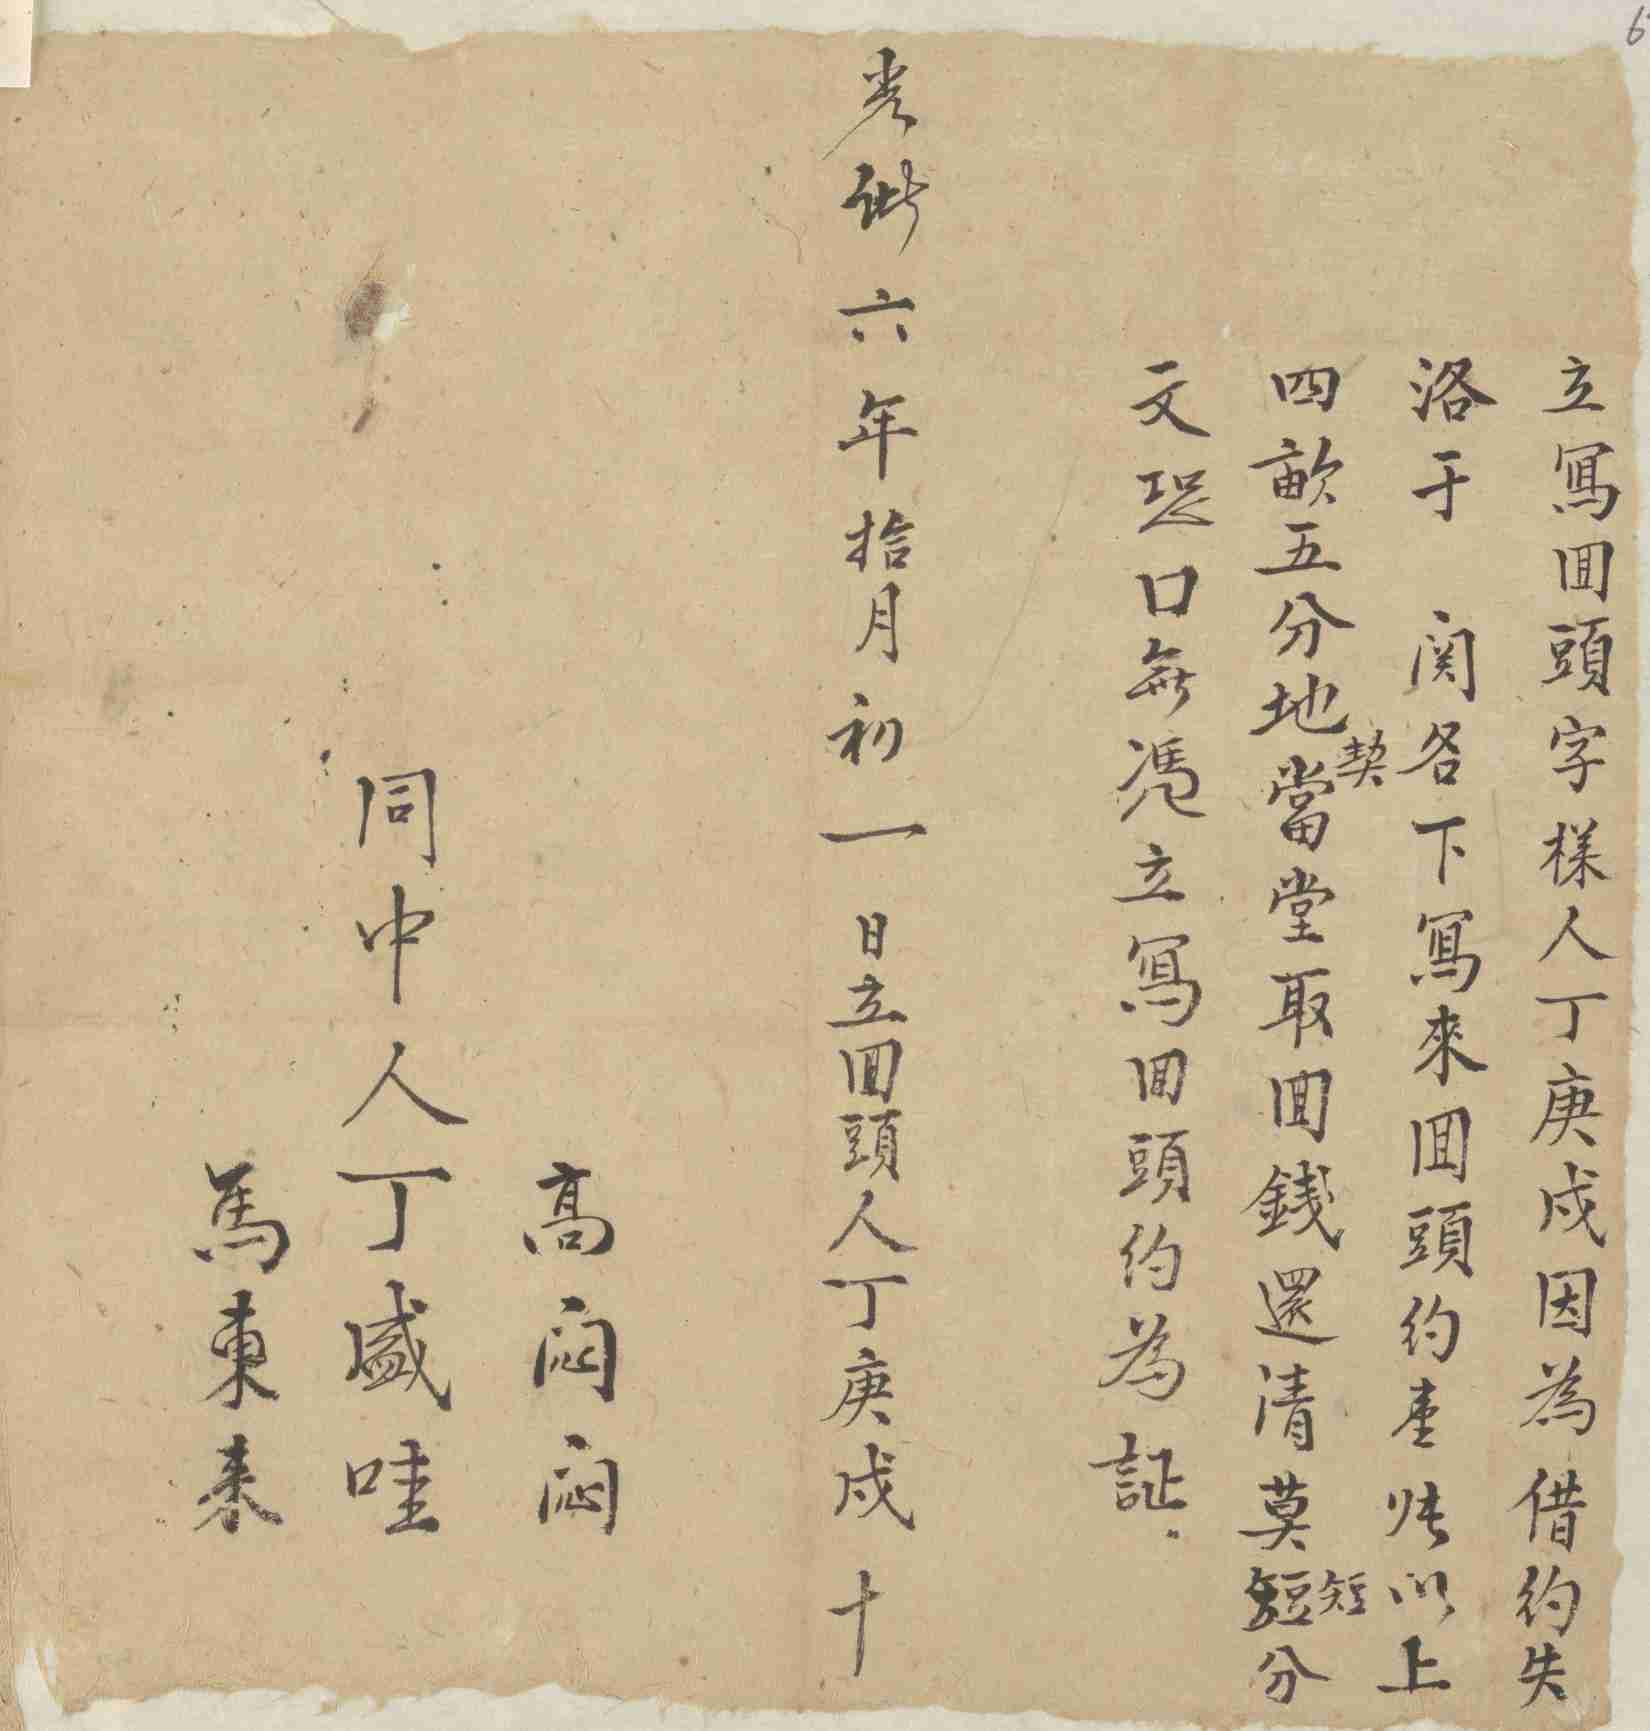 立寫囬頭字樣人丁庚戍因為借約失
洛于 関各下寫來囬頭約壹帋以上
四畝五分地契當堂取囬錢還清莫短短分
文恐口無憑立寫囬頭約為証
光緒六年拾月初一日立囬頭人丁庚戍十
高悶悶
同中人丁盛哇
馬東來
6